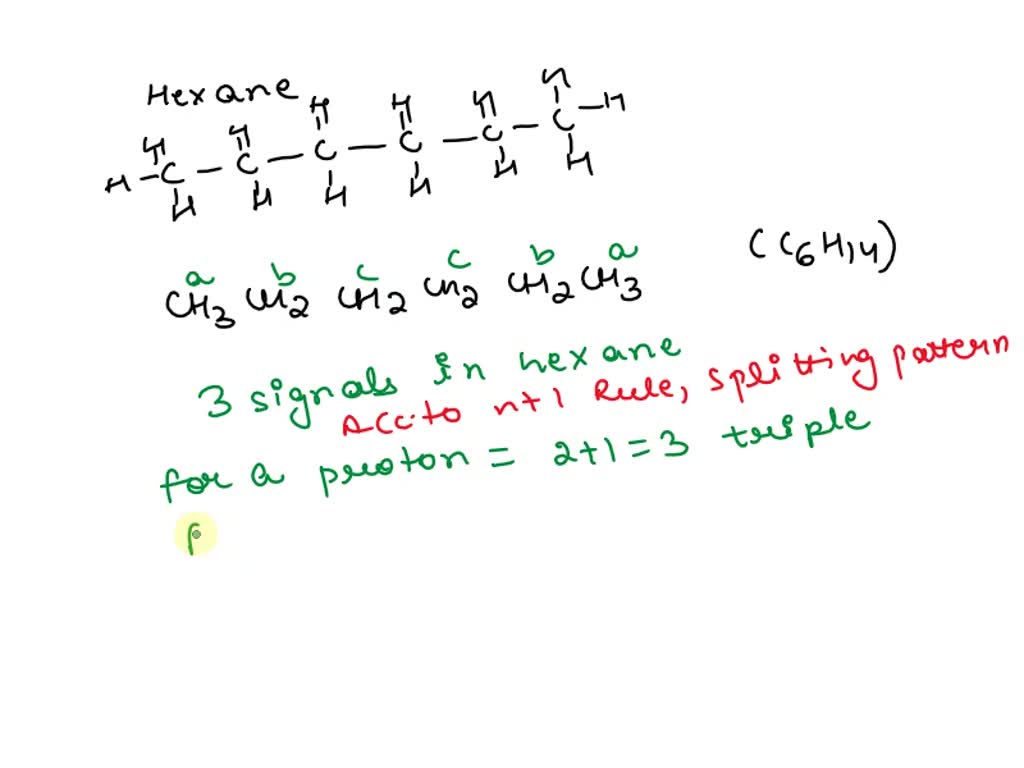 Hexane
H H H H H H
H - C - C - C - C - C - C - H
H H H H H H
a b c c b a
CH3 CH2 CH2 CH2 CH2 CH3 (C6H14)
3 signals in hexane
Acc.to n+1 Rule, splitting pattern
for a proton = 2+1=3 triple
f